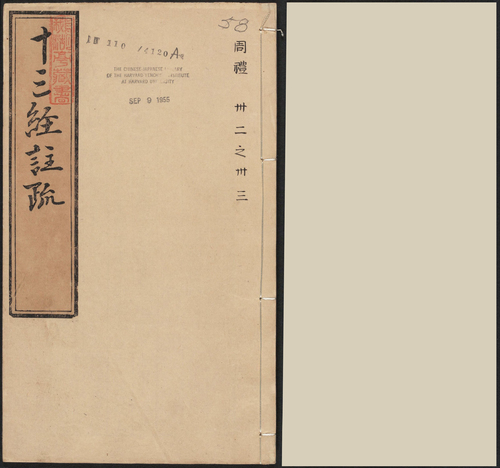 十三經註疏
周禮 卅二之卅三
58
THE CHINESE-JAPANESE LIBRARY
OF THE HARVARD-YENCHING INSTITUTE
AT HARVARD UNIVERSITY
SEP 9 1955